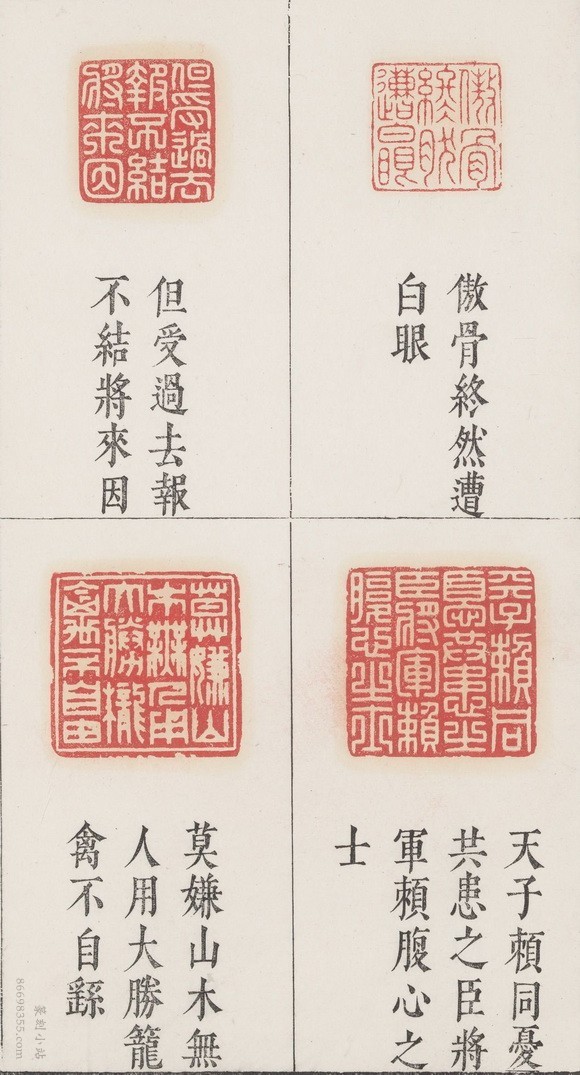 傲骨終然遭
白眼
但受過去報
不結將來因
天子賴同憂
共患之臣將
軍賴腹心之
士
莫嫌山木無
人用大勝籠
禽不自繇
篆刻小站
86698355.com